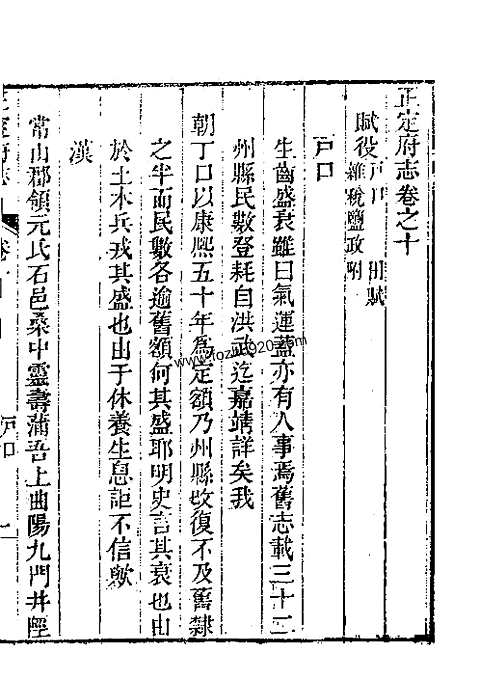 正定府志卷之十
賦役 戶口 田賦
雜稅 鹽政附
戶口
生齒盛衰雖曰氣運蓋亦有人事焉舊志載三十二
州縣民數登耗自洪武迄嘉靖詳矣我
朝丁口以康熙五十年為定額乃州縣改復不及舊隸
之半而民數各逾舊額何其盛耶明史言其衰也由
於土木兵戎其盛也由于休養生息詎不信歟
漢
常山郡領元氏石邑桑中靈壽蒲吾上曲陽九門井陘
正定府志
卷十
戶口
一
www.fozhu920.com